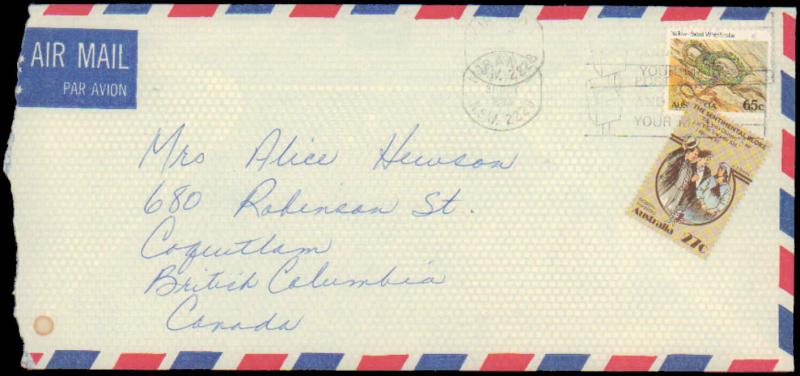 AIR MAIL
PAR AVION
N.S.W. 2229
N.S.W. 2229
YOUR
AND
YOUR
65c
THE SENTIMENTAL BLOKE
Australia 27c
Mrs Alice Hewson
680 Robinson St.
Coquitlam
British Columbia
Canada